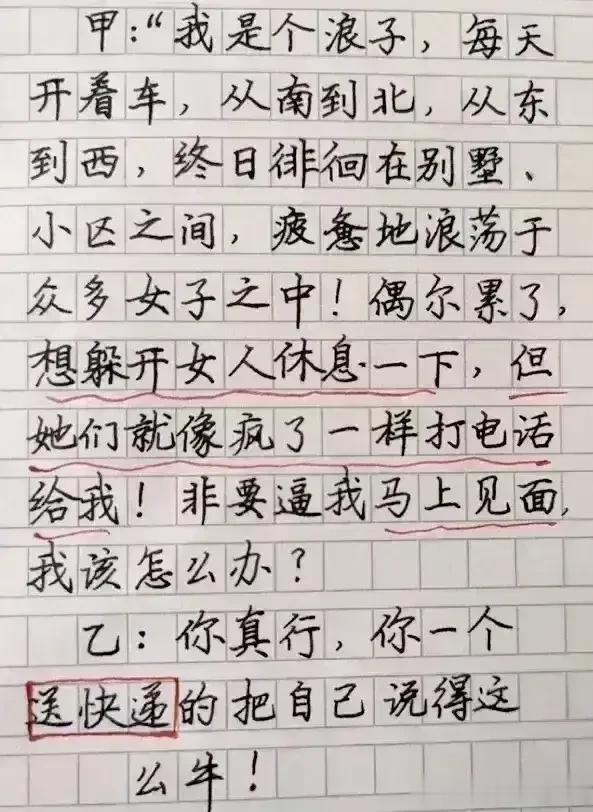 甲:“我是个浪子，每天
开着车，从南到北，从东
到西，终日徘徊在别墅、
小区之间，疲惫地浪荡于
众多女子之中！偶尔累了，
想躲开女人休息一下，但
她们就像疯了一样打电话
给我！非要逼我马上见面，
我该怎么办？
乙：你真行，你一个
送快递的把自己说得这
么牛！